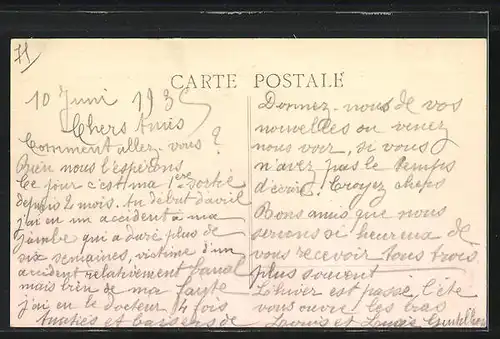 71
CARTE POSTALE
10 Juni 193
Chers Amis
Comment allez-vous ?
Bien nous l'espérons
Ce jour c'est ma 1ère sortie
depuis 2 mois. Au début d'avril
j'ai eu un accident à ma
jambe qui a duré plus de
six semaines, victime d'un
accident relativement banal
mais bien de ma faute
j'ai eu le docteur 4 fois
Amitiés et baisers de
Donnez-nous de vos
nouvelles ou venez
nous voir, si vous
n'avez pas le temps
d'écrire. Croyez chers
Bons amis que nous
serions si heureux de
vous recevoir tous trois
plus souvent
L'hiver est passé, l'été
vous ouvre les bras
Louis et Louis